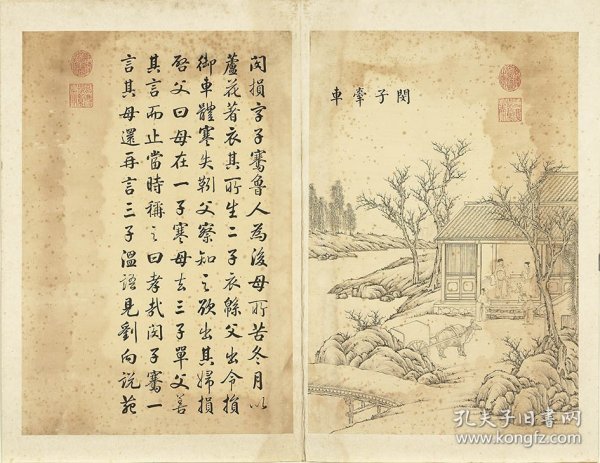 閔子牽車
閔損字子騫魯人為後母所苦冬月以
蘆花著衣其所生二子衣緜父出令損
御車體寒失靷父察知之欲出其婦損
啓父曰母在一子寒母去三子單父善
其言而止當時稱之曰孝哉閔子騫一
言其母還再言三子溫語見劉向說苑
孔夫子旧书网
www.kongfz.com